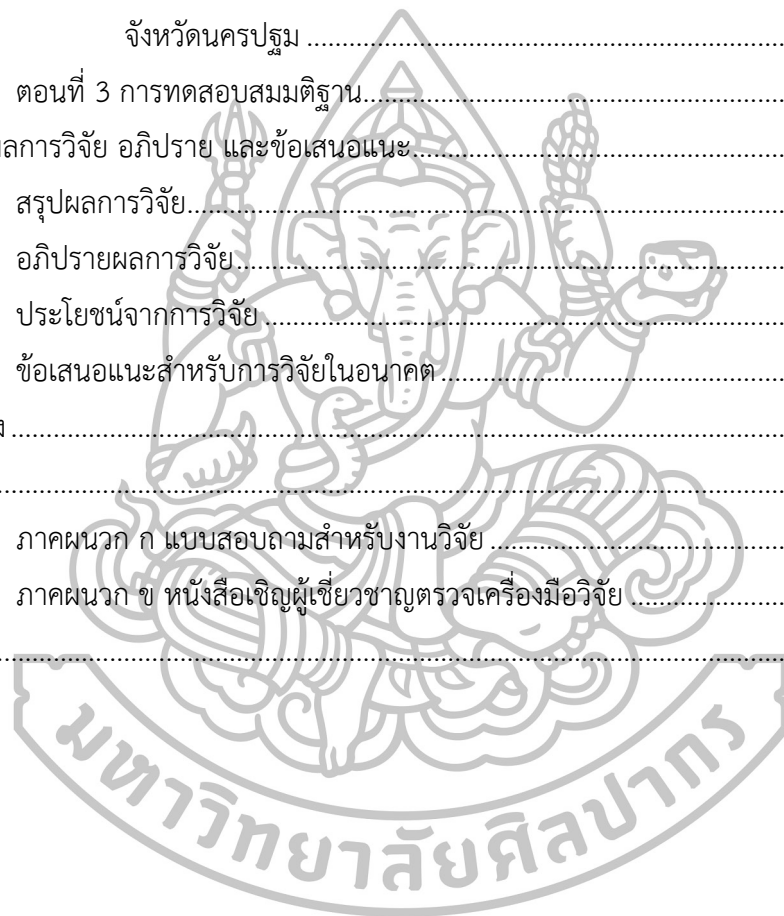 จังหวัดนครปฐม ........................................
ตอนที่ 3 การทดสอบสมมติฐาน........................................
ผลการวิจัย อภิปราย และข้อเสนอแนะ........................................
สรุปผลการวิจัย........................................
อภิปรายผลการวิจัย........................................
ประโยชน์จากการวิจัย ........................................
ข้อเสนอแนะสำหรับการวิจัยในอนาคต ........................................
ภาคผนวก ก แบบสอบถามสำหรับงานวิจัย ........................................
ภาคผนวก ข หนังสือเชิญผู้เชี่ยวชาญตรวจเครื่องมือวิจัย ........................................
มหาวิทยาลัยศิลปากร